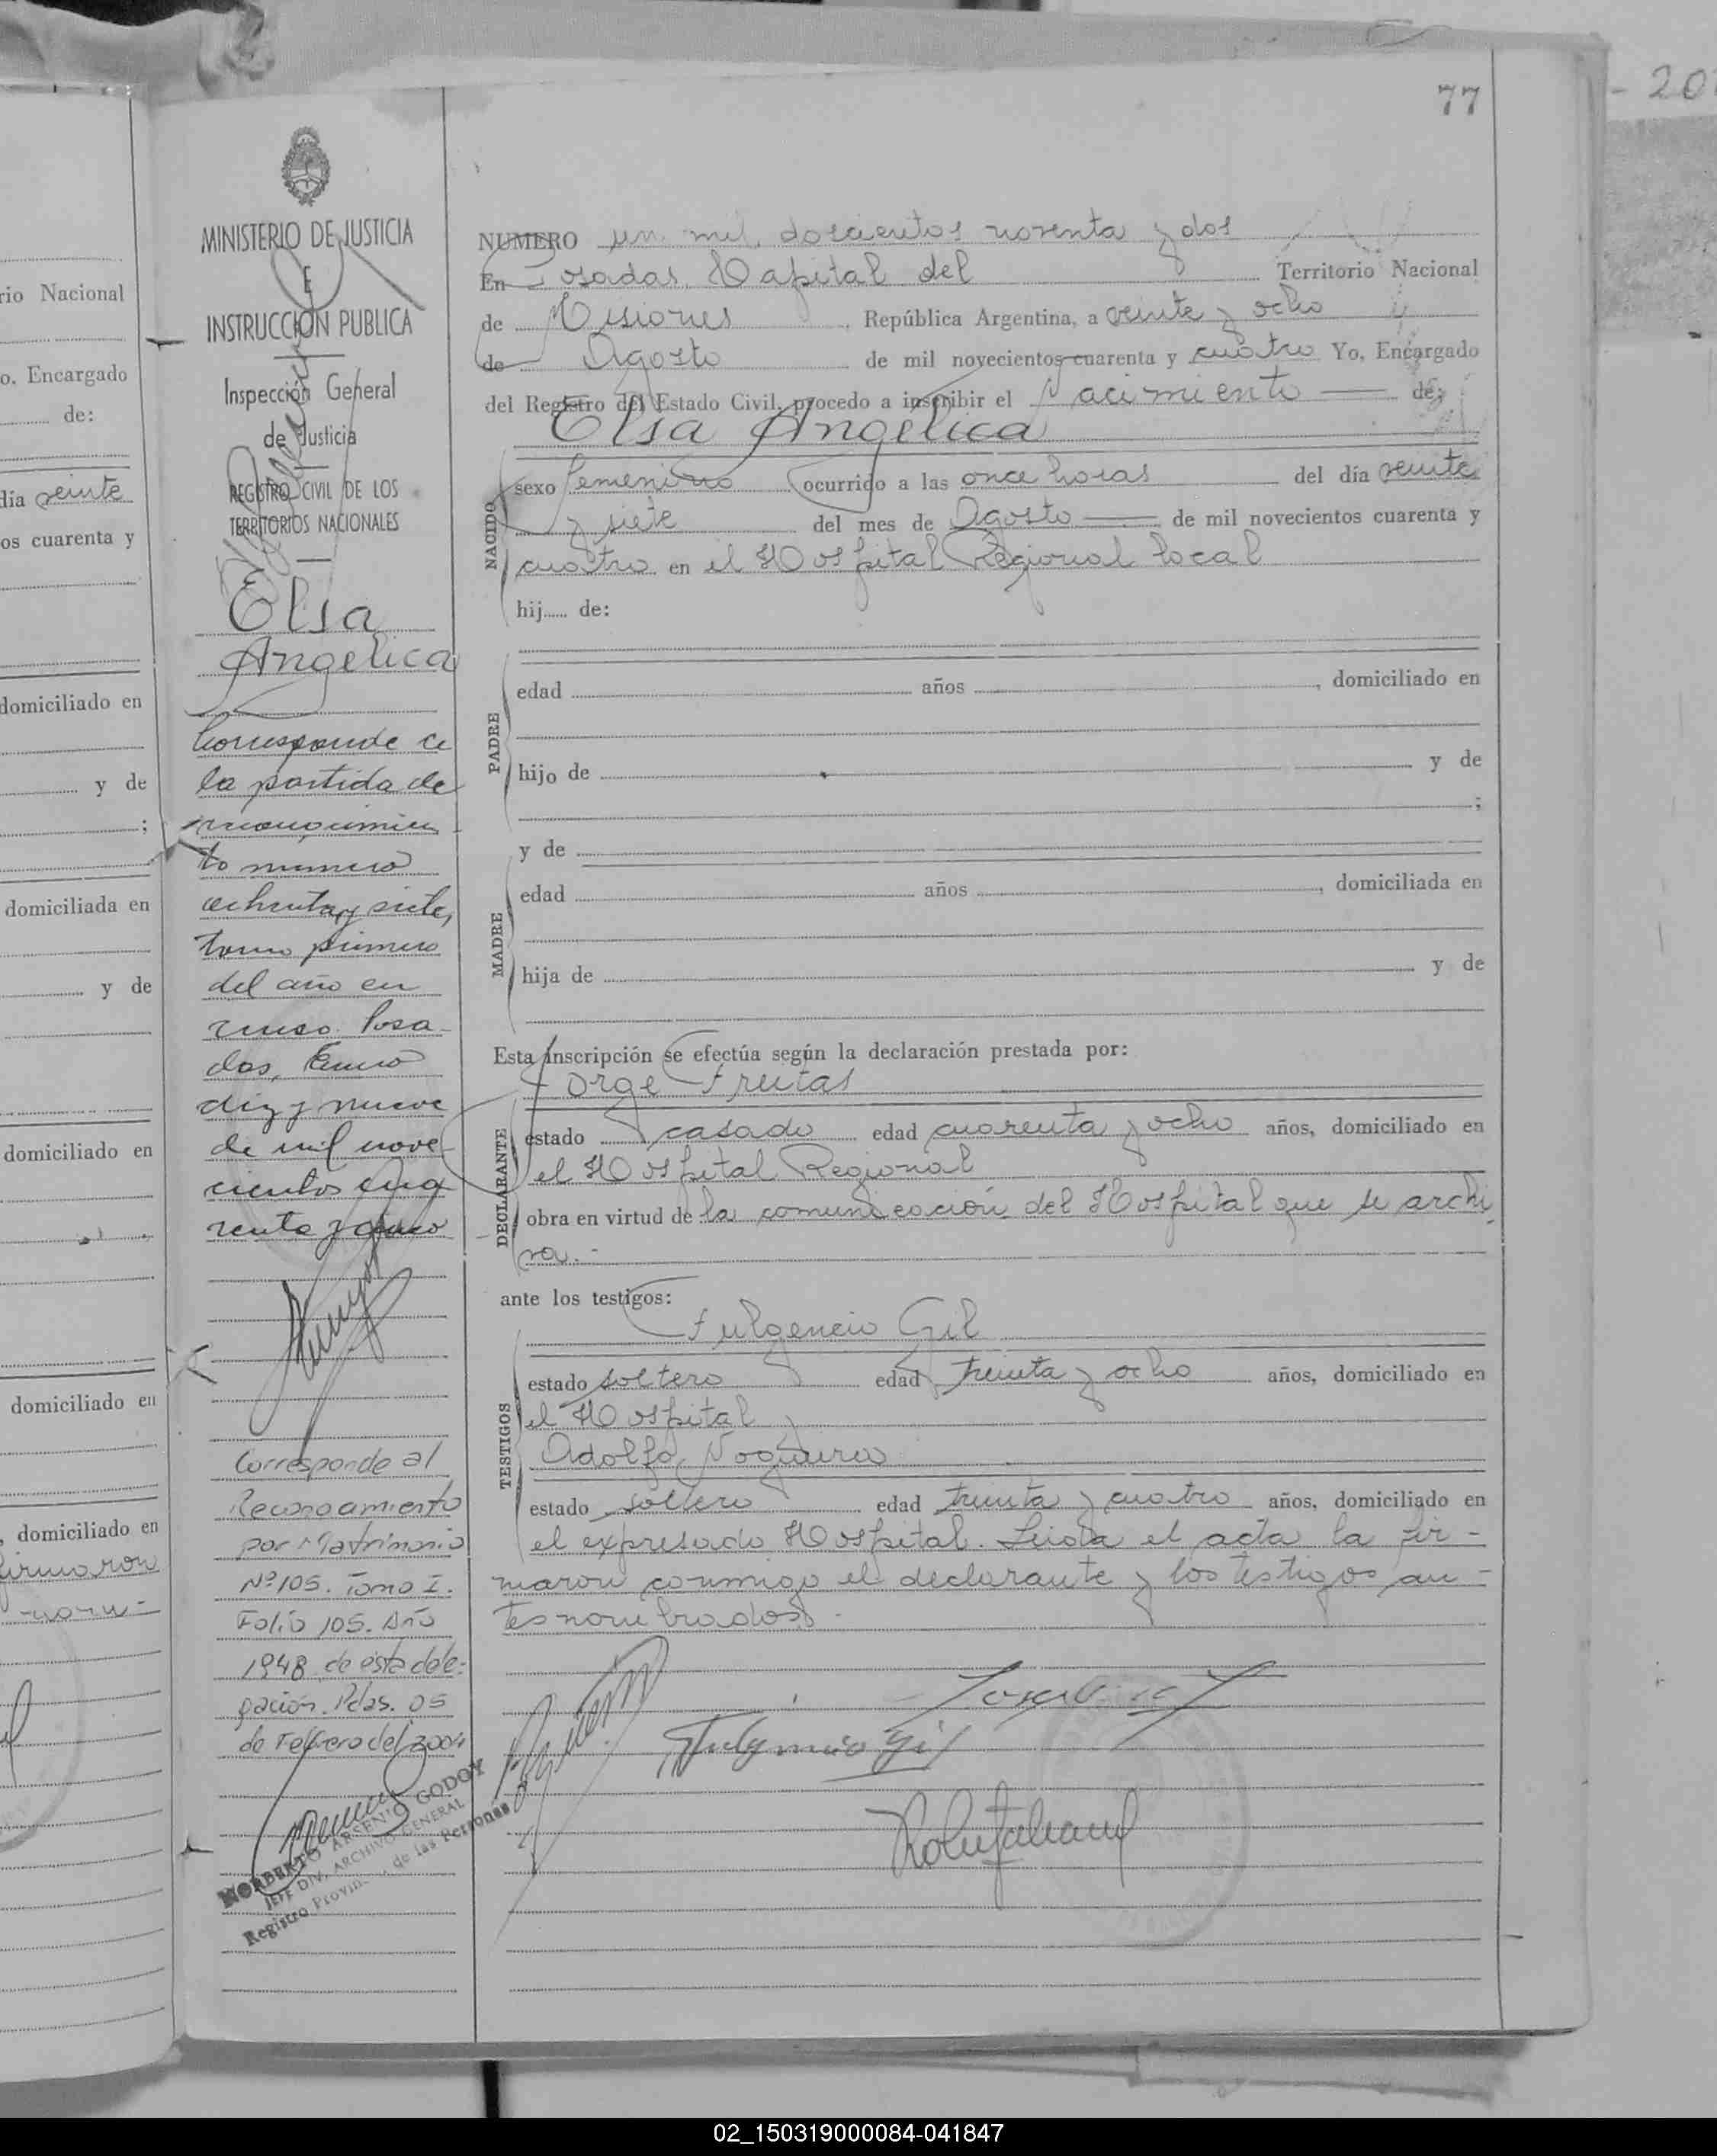 77
- 20
MINISTERIO DE JUSTICIA
E
INSTRUCCION PUBLICA
Inspección General
de Justicia
REGISTRO CIVIL DE LOS
TERRITORIOS NACIONALES
Elsa
Angélica
Corresponde a
la partida de
reconocimien
to numero
ochenta y siete,
tomo primero
del año en
curso. Posa-
das, Enero
diez y nueve
de mil nove
cientos cua
renta y cinco
Corresponde al
Reconocimiento
por Matrimonio
Nº 105. Tomo I.
Folio 105. Año
1948 de esta dele-
gación. Pdas. 05
de Febrero del 2004
NORBERTO ARSENIO GODOY
JEFE DIV. ARCHIVO GENERAL
Registro Provin... de las Personas
NUMERO un mil doscientos noventa y dos
En Posadas Capital del Territorio Nacional
de Misiones República Argentina, a veinte y ocho
de Agosto de mil novecientos cuarenta y cuatro Yo, Encargado
del Registro del Estado Civil, procedo a inscribir el Nacimiento de:
Elsa Angélica
NACIDO
sexo femenino ocurrido a las once horas del día veinte
y siete del mes de Agosto de mil novecientos cuarenta y
cuatro en el Hospital Regional local
hij..... de:
PADRE
edad años , domiciliado en
hijo de y de
;
y de
MADRE
edad años , domiciliada en
hija de y de
Esta inscripción se efectúa según la declaración prestada por:
Jorge Freitas
DECLARANTE
estado casado edad cuarenta y ocho años, domiciliado en
el Hospital Regional
obra en virtud de la comunicación del Hospital que se archi
va.-
ante los testigos:
Fulgencio Gil
TESTIGOS
estado soltero edad treinta y ocho años, domiciliado en
el Hospital
Adolfo Nogueira
estado soltero edad treinta y cuatro años, domiciliado en
el expresado Hospital. Leida el acta la fir-
maron conmigo el declarante y los testigos an-
tes nombrados.-
Fulgencio Gil
rio Nacional
o, Encargado
de:
día veinte
os cuarenta y
domiciliado en
y de
;
domiciliada en
y de
domiciliado en
domiciliado en
, domiciliado en
firmaron
02_150319000084-041847